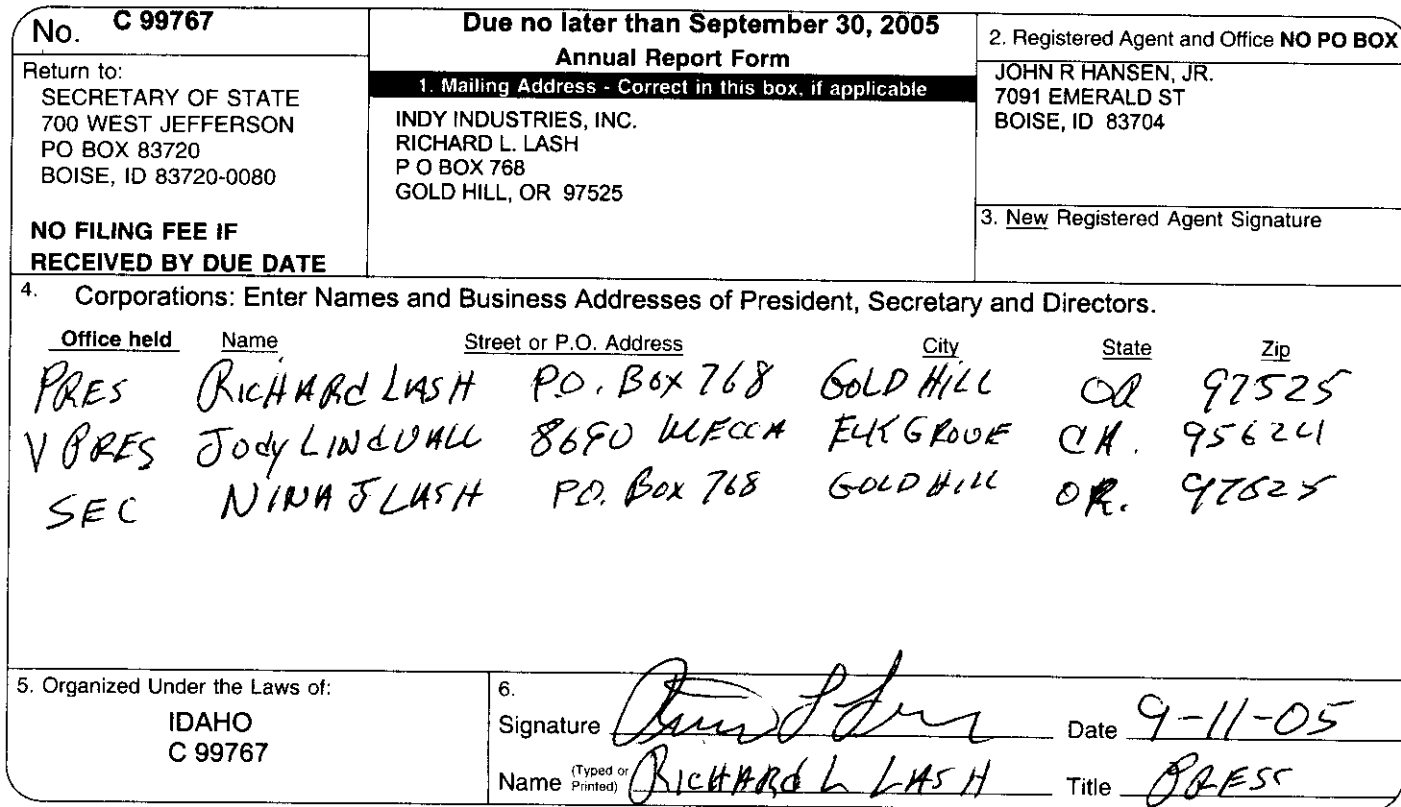 No. C 99767
Return to:
SECRETARY OF STATE
700 WEST JEFFERSON
PO BOX 83720
BOISE, ID 83720-0080
NO FILING FEE IF
RECEIVED BY DUE DATE
Due no later than September 30, 2005
Annual Report Form
1. Mailing Address - Correct in this box, if applicable
INDY INDUSTRIES, INC.
RICHARD L. LASH
P O BOX 768
GOLD HILL, OR 97525
2. Registered Agent and Office NO PO BOX
JOHN R HANSEN, JR.
7091 EMERALD ST
BOISE, ID 83704
3. New Registered Agent Signature
4. Corporations: Enter Names and Business Addresses of President, Secretary and Directors.
Office held Name Street or P.O. Address City State Zip
PRES RICHARd LASH P.O. Box 768 GOLD HILL OR 97525
V PRES Jody LINdVALL 8690 MECCA ELK GROVE CA. 95624
SEC NINA J LASH P.O. Box 768 GOLD HILL OR. 97525
5. Organized Under the Laws of:
IDAHO
C 99767
6.
Signature Date 9-11-05
Name (Typed or Printed) RICHARd L LASH Title PRES